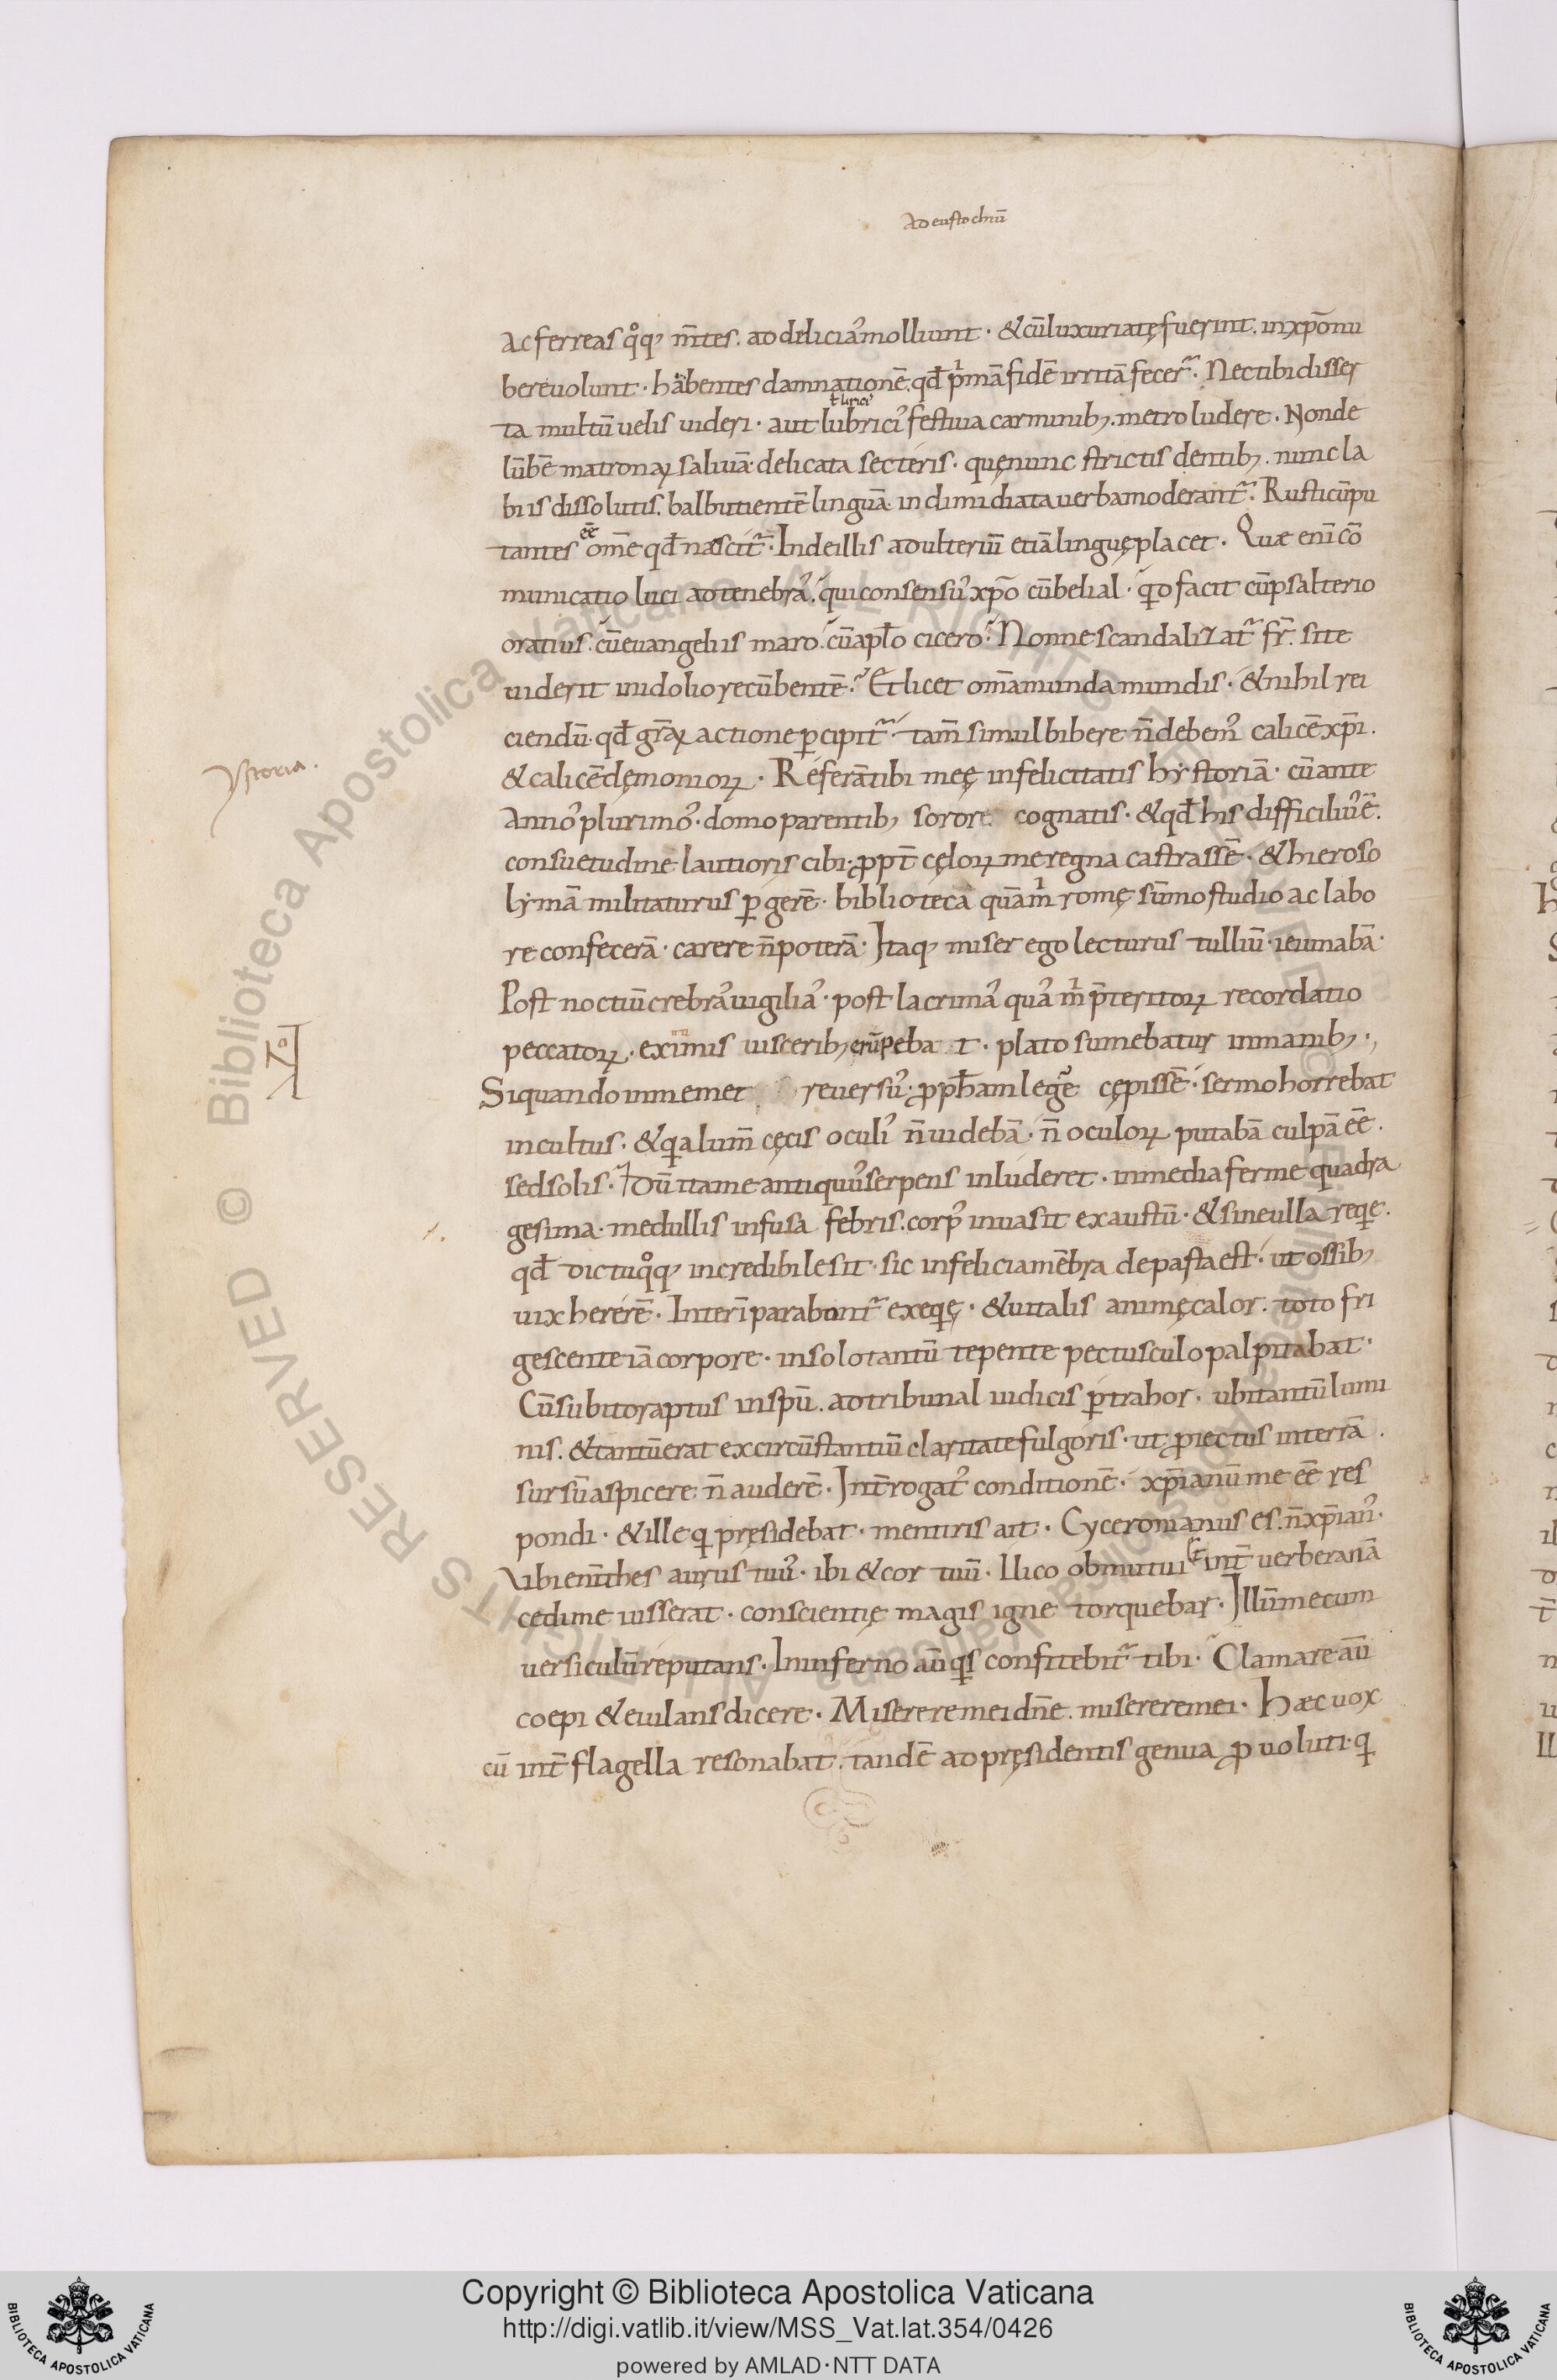 Ad eustochiū
Ac ferreas qͦq; m̄tes. ad deliciaꝰ molliunt · & cū luxuriatę fuerint. inxp̄o nu
bere uolunt · habentes damnationē. qđ pͥmā fidē irritā fecerᷓ. Nec tibi disser
ł lirici
ta multū uelis uideri · aut lubriciꝰ festiua carminib;. metro ludere · Non de
lūbē matronaꝝ saliuā. delicata secteris · quę nunc strictis dentib;. nunc la
biis dissolutis. balbutientē linguā. in dimidiata uerba moderantᷓ. Rusticū pu
tantes ēē om̄e qđ nascitᷓ. Inde illis adulteriū etiā linguę placet · Quæ eni̅ cō
municatio luci ad tenebraꝰ. qui consensuꝰ xp̄o cū belial · qͥd facit cū psalterio
oratius. cū euangeliis maro. cū apl̄o cicero. Nonne scandalizatᷓ fr̄. si te
uiderit in idolio recūbentē. Et licet om̄a munda mundis · & nihil rei
ciendū. qđ gr̄aꝝ actione ꝑcipitᷓ. tam̄ simul bibere n̄ debem̉ calicē xp̄i.
& calicē dęmonioꝝ · Referā tibi meę infelicitatis hystoriā · cū ante
ystoria.
Annoꝰ plurimoꝰ · domo parentib; sorore cognatis · & qđ his difficiliuꝰ ē.
consuetudine lautioris cibi. ꝓpt̄ cęloꝝ me regna castrassē · & hieroso
lymā militaturus ꝑgerē · bibliotecā quā mͥ romę sūmo studio ac labo
re confecerā · carere n̄ poterā · Itaq; miser ego lecturus tulliū · ieiunabā ·
Post noctiū crebraꝰ uigiliaꝰ · post lacrimaꝰ quaꝰ mͥ p̄teritoꝝ recordatio
peccatoꝝ · ex imis uisceribus erūpeba t · plato sumebatur in manib; ·,
Si quando in memet reuersuꝰ · ꝓph̄am legęē cępissē · sermo horrebat
incultus · & qͥa lum̄ cęcis oculiꝰ n̄ uidebā · n̄ oculoꝝ putabā culpā ēē.
sed solis · Dū ita me antiquuꝰ serpens inluderet · in media ferme quadra
gesima · medullis infusa febris. corpꝰ inuasit exaustū · & sine ulla reqͥe.
qđ dictu qͦq; incredibile sit · sic infelicia mēbra depasta est · ut ossib;
uix hererē · Interi̅ parabantᷓ exeqͥę · & uitalis animę calor. toto fri
gescente iā corpore · in solo tantū tepente pectusculo palpitabat ·
Cū subito raptus in sp̄ū. ad tribunal iudicis ꝑtrahor · ubi tantū lumi
nis. & tantū erat ex circūstantiū claritate fulgoris · ut ꝓiectus in terrā.
sursū aspicere n̄ auderē · Int̄rogatꝰ conditionē · xp̄ianū me ēē res
pondi · & ille qͥ pręsidebat · mentiris ait · Cyceronianus es. n̄ xp̄ianꝰ.
Vbi eni̅ thesaurus tuuꝰ · ibi & cor tuū · Ilico obmutui & int̄ uerbera nā
cedi me iusserat · conscientię magis igne torquebar · Illū mecum
uersiculū reputans · In inferno aū qͥs confitebitᷓ tibi · Clamare aū
coepi & eiulans dicere · Miserere mei dn̄e. miserere mei · Hæc uox
cū int̄ flagella resonabat. tandē ad pręsidentis genua ꝓuoluti. qͥ
Copyright © Biblioteca Apostolica Vaticana
http://digi.vatlib.it/view/MSS_Vat.lat.354/0426
powered by AMLAD·NTT DATA